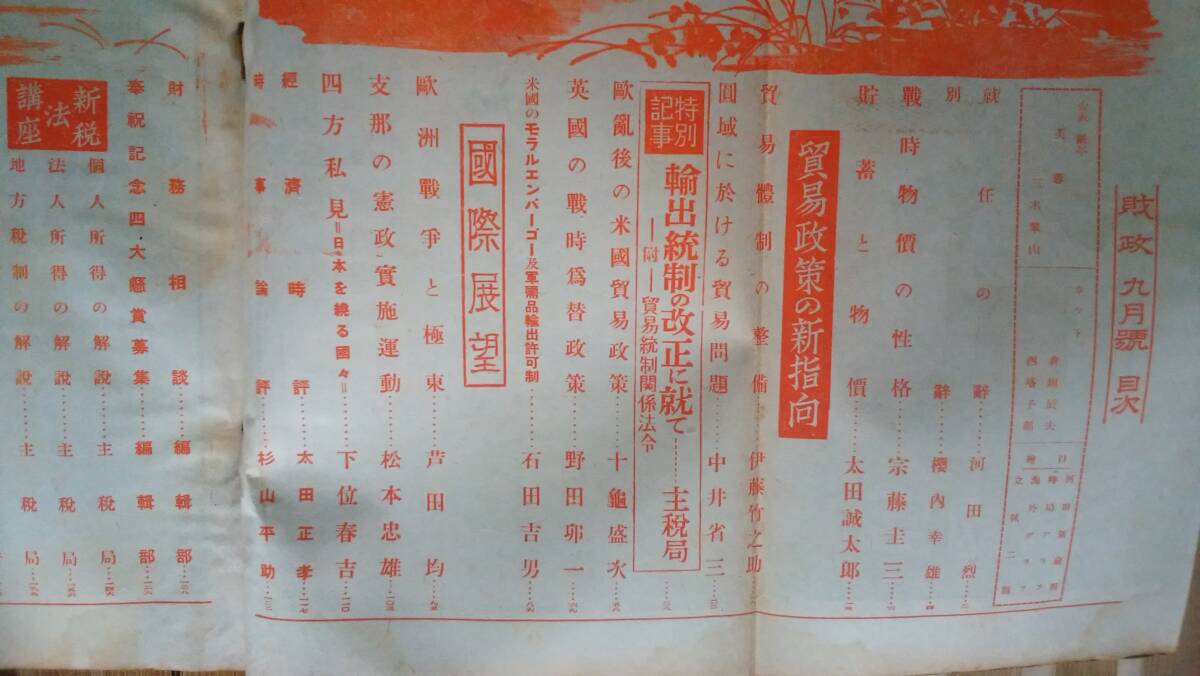 財政九月號 目次
就任の辭……河田烈
別辭……櫻內幸雄
戰時物價の性格……宗藤圭三
貯蓄と物價……太田誠太郎
貿易政策の新指向
貿易體制の整備……伊藤竹之助
圓域に於ける貿易問題……中井省三
特別記事
輸出統制の改正に就て……主稅局
—附—貿易統制関係法令
歐亂後の米國貿易政策……十龜盛次
英國の戰時爲替政策……野田卯一
米國のモラルエンバーゴー及軍需品輸出許可制……石田吉男
國際展望
歐洲戰爭と極東……芦田均
支那の憲政實施運動……松本忠雄
四方私見=日本を繞る國々=……下位春吉
經濟時評……太田正孝
時事論評……杉山平助
財務相談……編輯部
奉祝記念四大懸賞募集……編輯部
新税法講座
個人所得の解說……主稅局
法人所得の解說……主稅局
地方稅制の解說……主稅局